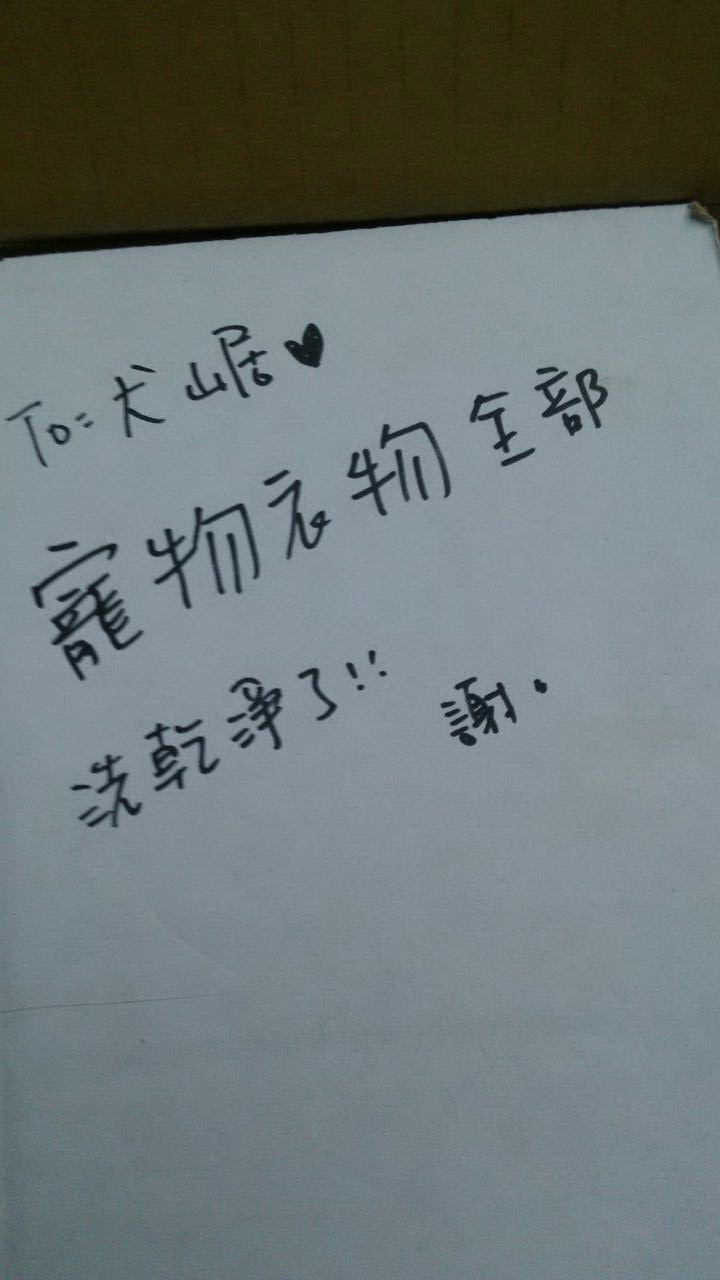 To: 犬山居♥
寵物衣物全部
洗乾淨了!! 謝.